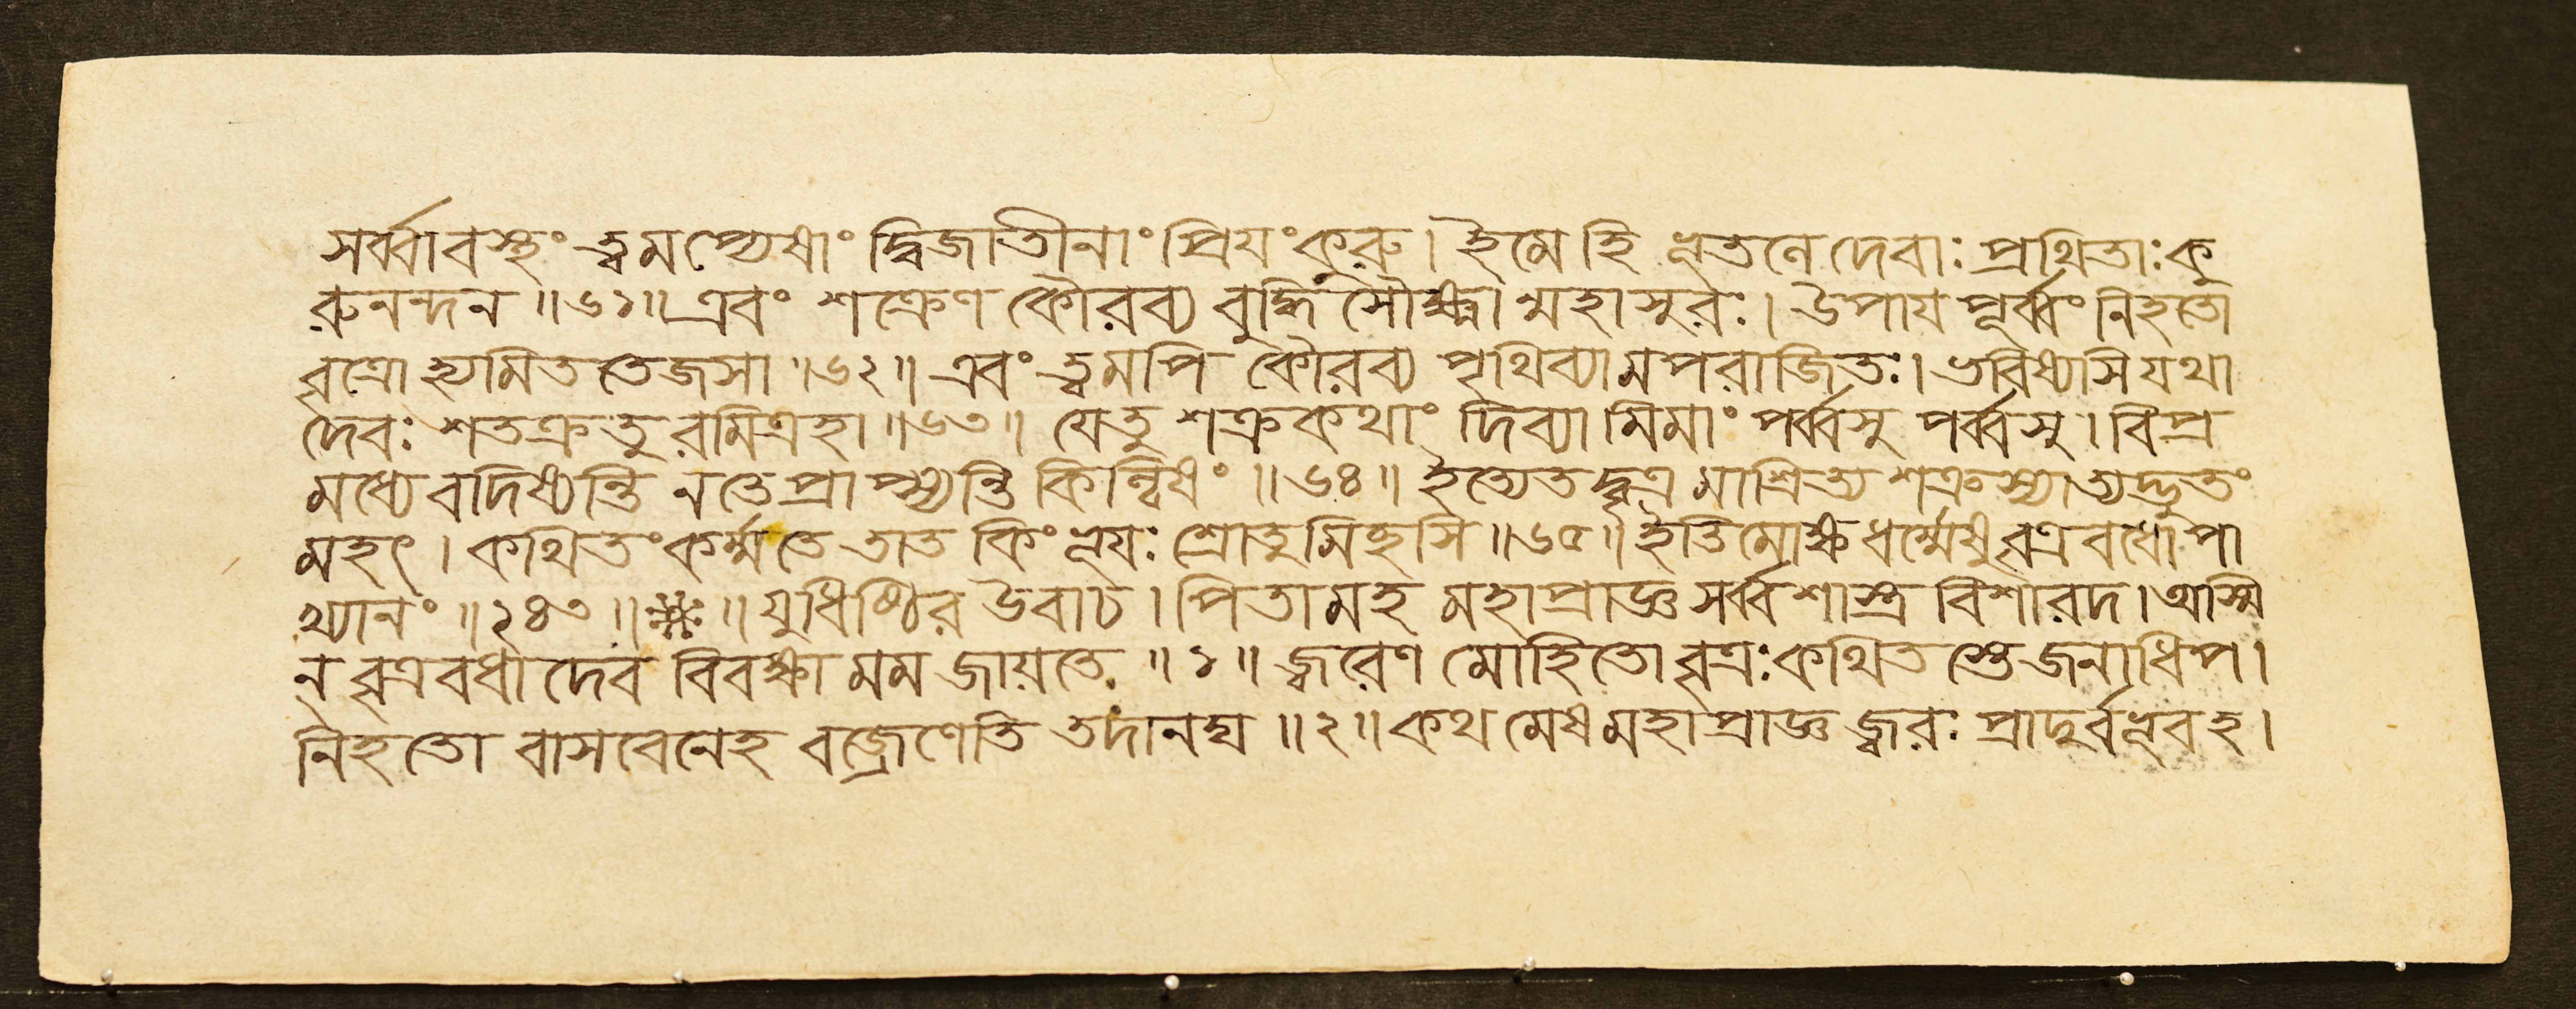 সর্ব্বাবস্থং ত্বমপ্যেষাং দ্বিজাতীনাং প্রিযংকুরু। ইমে হি ভূতলে দেবাঃ প্রথিতাঃ কু
রুনন্দন ॥৬১॥ এবং শক্রেণ কৌরব্য বুদ্ধি সৌক্ষ্ম্যান্মহাসুরঃ। উপায পূর্ব্বং নিহতো
বৃত্রো হ্যমিত তেজসা ॥৬২॥ এবং ত্বমপি কৌরব্য পৃথিব্যামপরাজিতঃ। ভবিষ্যসি যথা
দেবঃ শতক্রতুরমিত্রহা ॥৬৩॥ যেতু শক্রকথাং দিব্যামিমাং পর্ব্বসু পর্ব্বসু। বিপ্র
মধ্যে বদিষ্যন্তি নতে প্রাপ্স্যন্তি কিল্বিষং ॥৬৪॥ ইত্যেতদ্বৃত্রমাশ্রিত্য শক্রস্যাত্যদ্ভুতং
মহৎ। কথিতং কর্ম্ম তে তাত কিং ভূযঃ শ্রোতুমিহসি ॥৬৫॥ ইতি মোক্ষধর্ম্মেষু বৃত্রবধোপা
খ্যানং ॥২৪৩॥ ॥ যুধিষ্ঠির উবাচ। পিতামহ মহাপ্রাজ্ঞ সর্ব্বশাস্ত্র বিশারদ। অস্মি
ন্ বৃত্রবধাদেব বিবক্ষা মম জায়তে ॥১॥ জ্বরেণ মোহিতো বৃত্রঃ কথিতস্তে জনাধিপ।
নিহতো বাসবেনেহ বজ্রেণেতি তদানঘ ॥২॥ কথমেষ মহাপ্রাজ্ঞ জ্বরঃ প্রাদুর্বভূবহ।